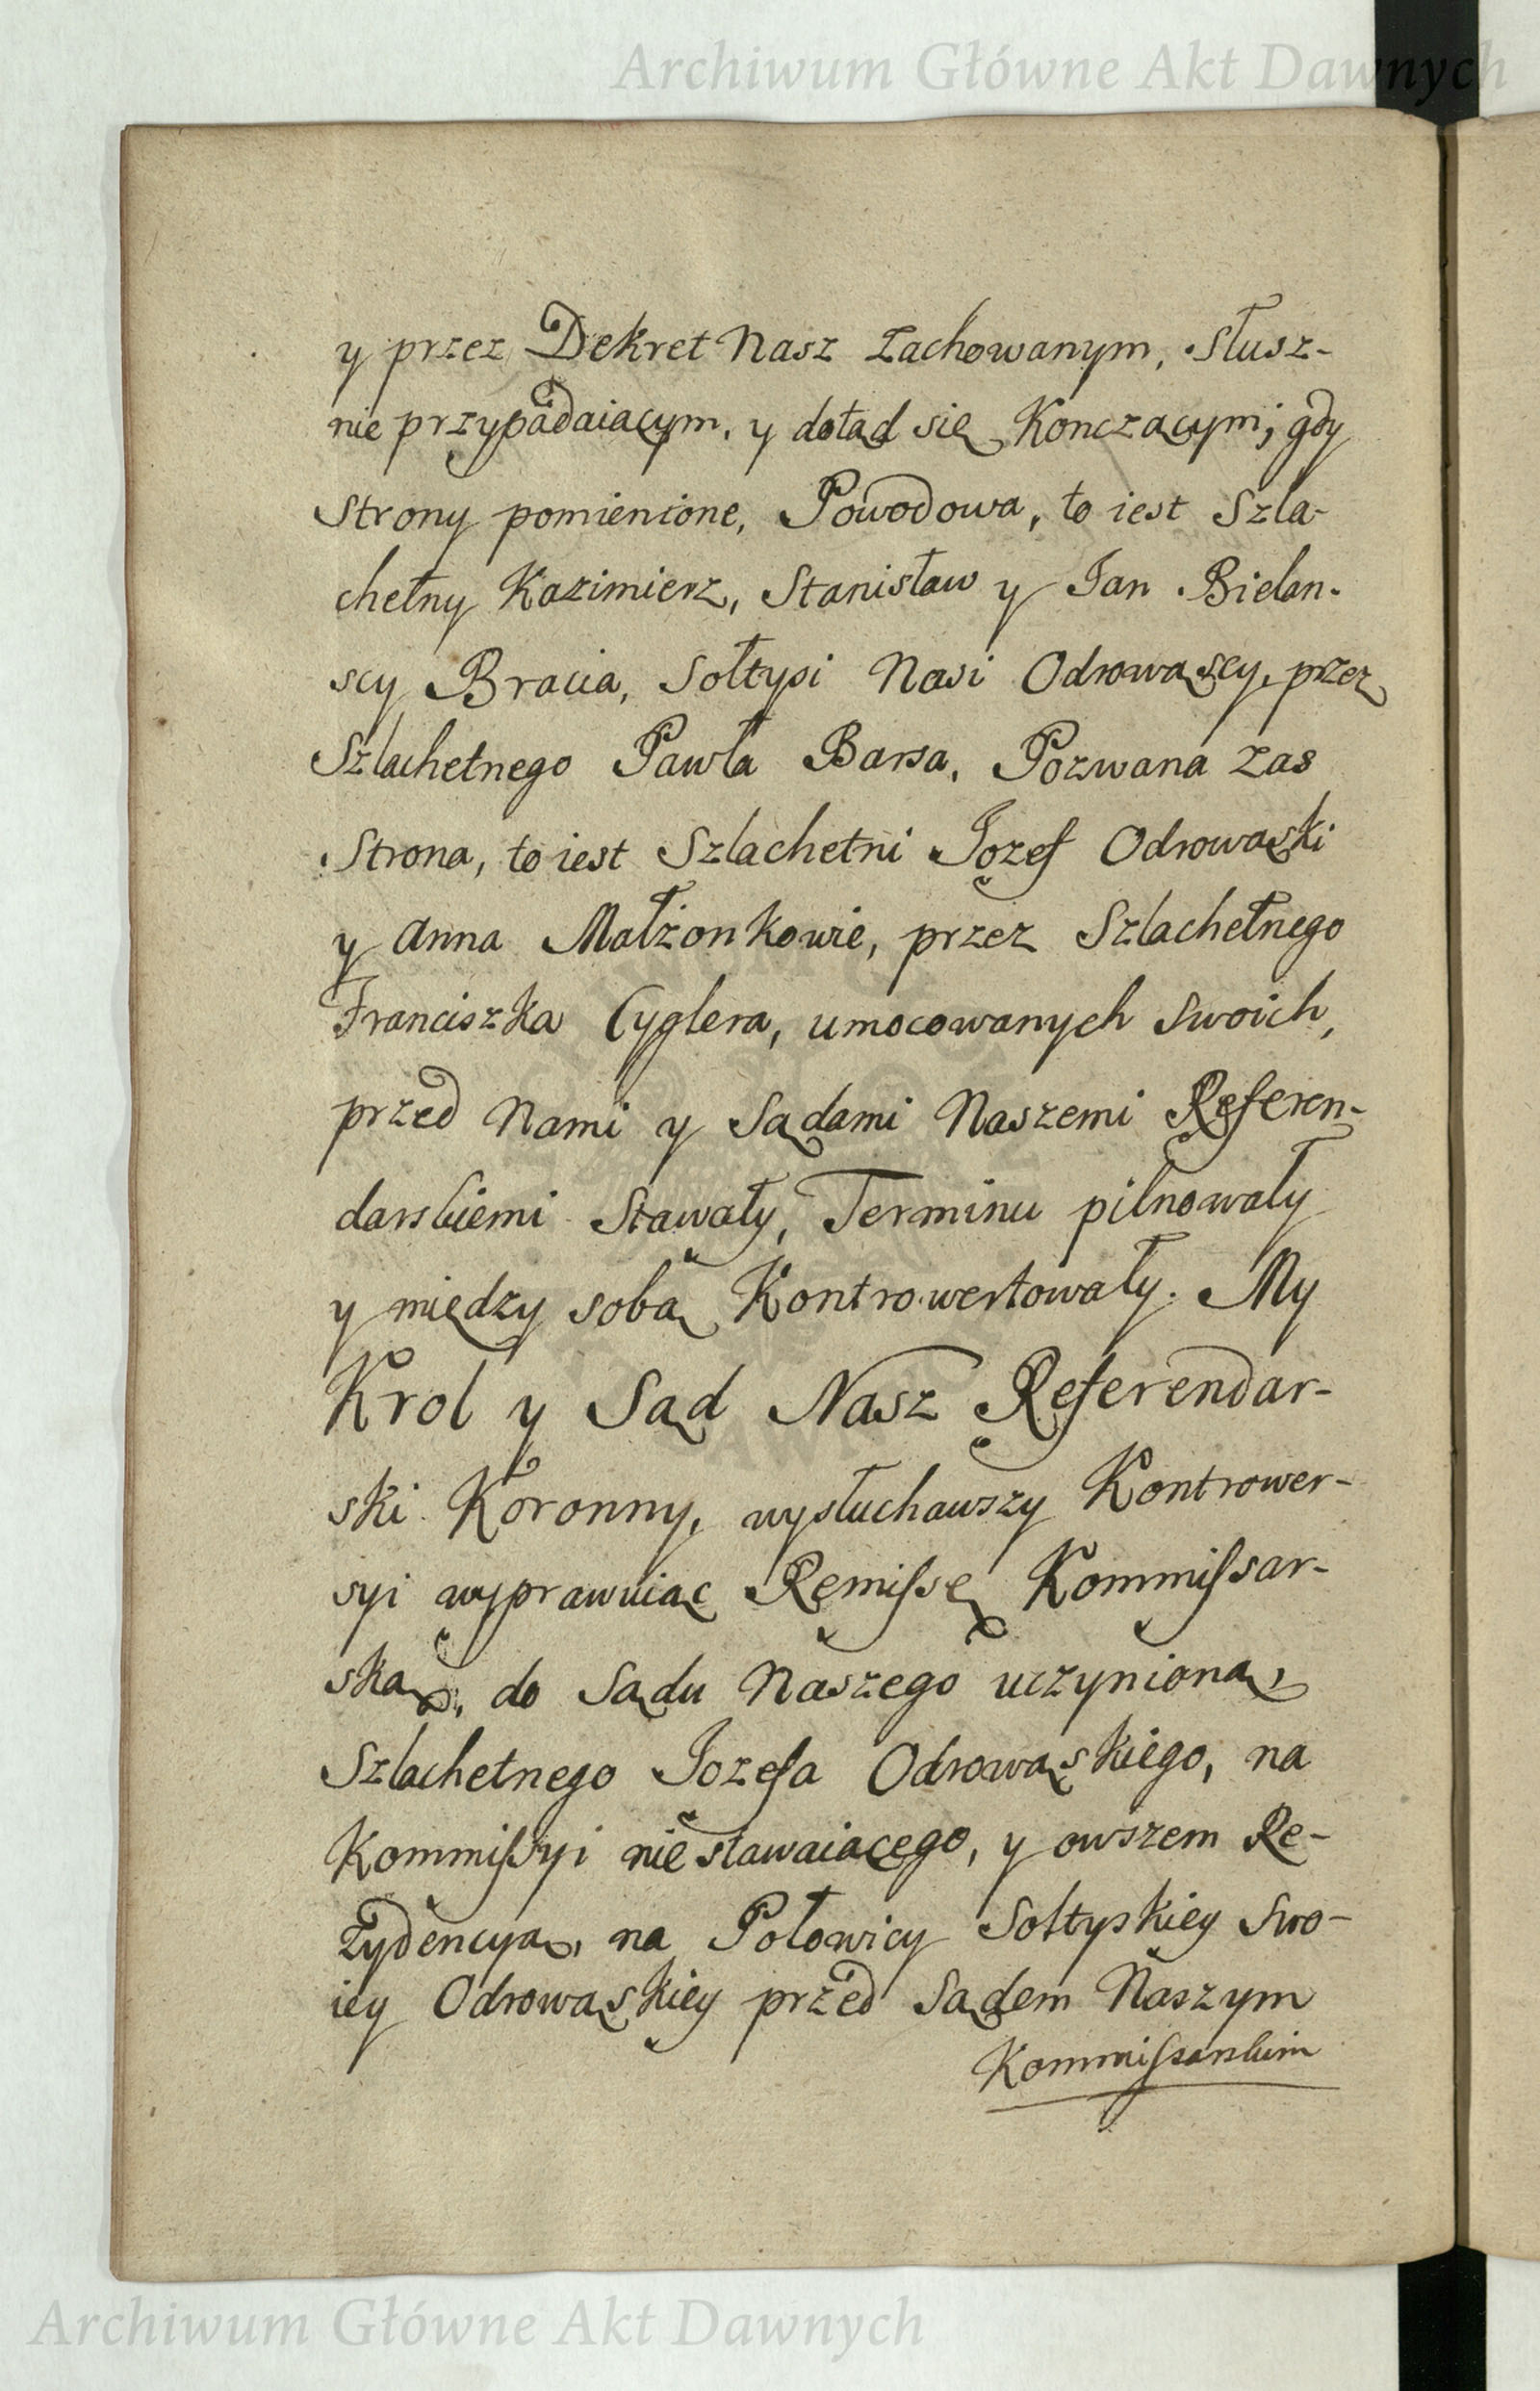 Archiwum Główne Akt Dawnych
y przez Dekret Nasz zachowanym, słusz-
nie przypadaiącym, y dotąd się Konczącym; gdy
Strony pomienione, Powodowa, to iest Szla-
chetny Kazimierz, Stanisław y Ian Bielan-
scy Bracia, Sołtysi Nasi Odrowąscy, przez
Szlachetnego Pawła Barsa, Pozwana zas
Strona, to iest Szlachetni Iozef Odrowąski
y Anna Małżonkowie, przez Szlachetnego
Franciszka Cyglera, umocowanych swoich,
przed Nami y Sądami Naszemi Referen-
darskiemi Stawały, Terminu pilnowały
y między sobą Kontrowertowały. My
Krol y Sąd Nasz Referendar-
ski Koronny, wysłuchawszy Kontrower-
syi wyprawuiąc Remissę Kommissar-
ską, do Sądu Naszego uczynioną,
Szlachetnego Iozefa Odrowąskiego, na
Kommissyi nie stawaiącego, y owszem Re-
zydencyą, na Połowicy Sołtyskiey Swo-
iey Odrowąskiey przed Sądem Naszym
Kommissarskim
Archiwum Główne Akt Dawnych